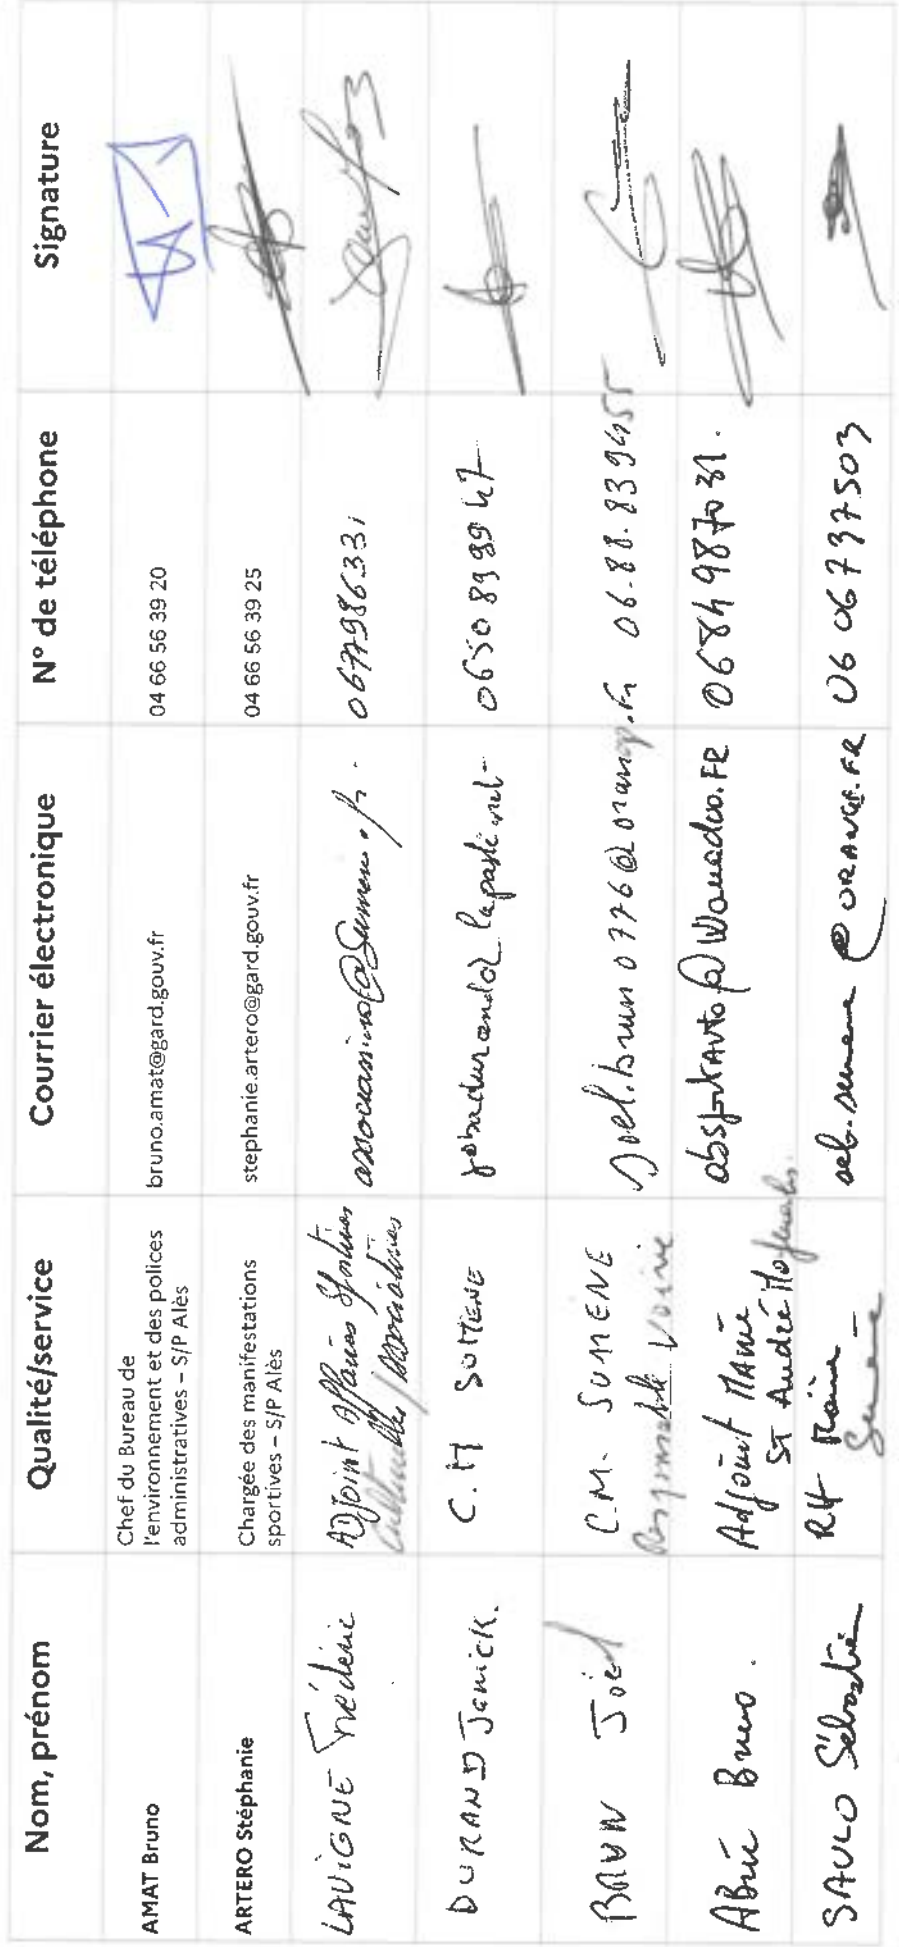 Nom, prénom Qualité/service Courrier électronique N° de téléphone Signature
AMAT Bruno
Chef du Bureau de
l'environnement et des polices
administratives – S/P Alès
bruno.amat@gard.gouv.fr
04 66 56 39 20
ARTERO Stéphanie
Chargée des manifestations
sportives – S/P Alès
stephanie.artero@gard.gouv.fr
04 66 56 39 25
LAVIGNE Frédéric
ADJOINT Affaires Sportives
0677986331
DURAND Janick.
C.M SUMENE
0650899947
BRUN Joël
C.M. SUMENE
Responsable Voirie
joel.brun0776@orange.fr
06.88.839455
Abric Bruno.
Adjoint MAIRIE
ST André
0684987031.
SAULO Sébastien
RH Mairie
Sumene
seb.sumene@ORANGE.FR
06 06737503